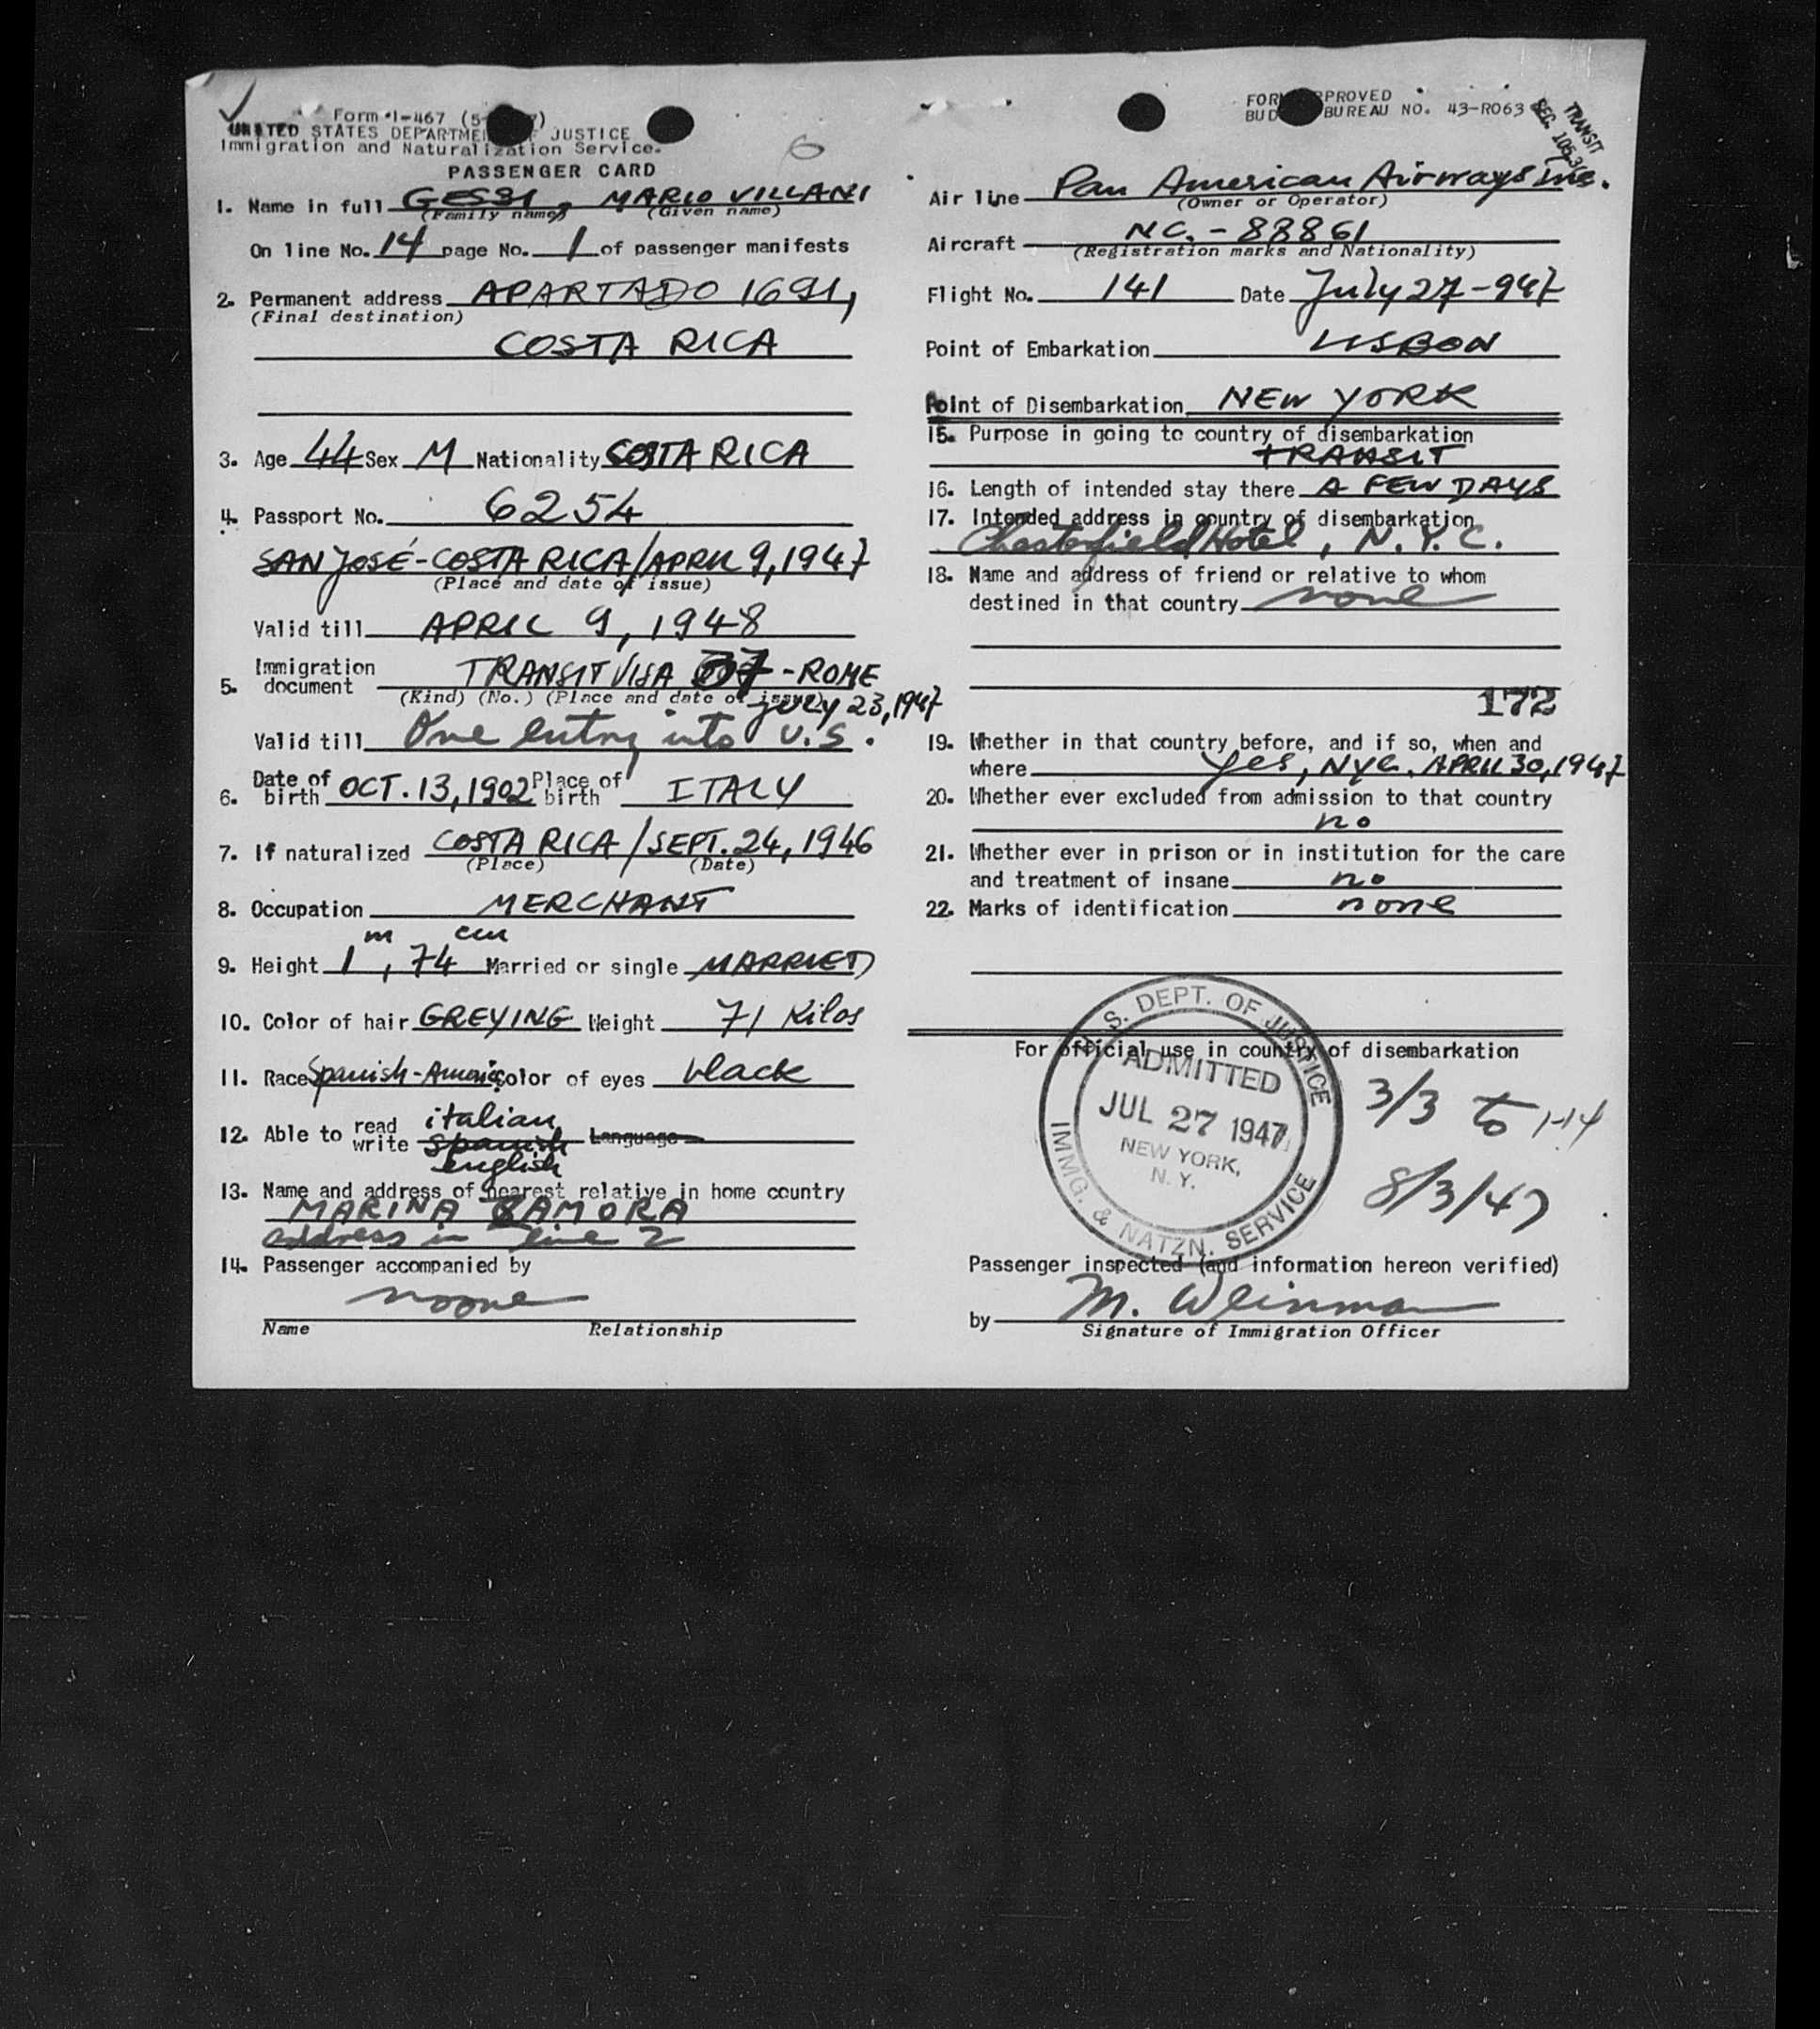 Form I-467 (5-
UNITED STATES DEPARTMENT OF JUSTICE
Immigration and Naturalization Service.
PASSENGER CARD
1. Name in full GESSI, MARIO VILLANI
(Family name) (Given name)
On line No. 14 page No. 1 of passenger manifests
2. Permanent address APARTADO 1691,
(Final destination)
COSTA RICA
3. Age 44 Sex M Nationality COSTA RICA
4. Passport No. 6254
SAN JOSÉ-COSTA RICA/APRIL 9, 1947
(Place and date of issue)
Valid till APRIL 9, 1948
5. Immigration document TRANSIT VISA - ROME
(Kind) (No.) (Place and date of issue)
July 23, 1947
Valid till One entry into U.S.
6. Date of birth OCT. 13, 1902 Place of birth ITALY
7. If naturalized COSTA RICA/SEPT. 24, 1946
(Place) (Date)
8. Occupation MERCHANT
m cm
9. Height 1, 74 Married or single MARRIED
10. Color of hair GREYING Weight 71 Kilos
11. Race Spanish-Americ Color of eyes black
italian
12. Able to read write spanish Language
english
13. Name and address of nearest relative in home country
MARINA ZAMORA
address in line 2
14. Passenger accompanied by
noone
Name Relationship
FORM APPROVED
BUDGET BUREAU NO. 43-R063
TRANSIT
SEC.
Air line Pan American Airways Inc.
(Owner or Operator)
Aircraft NC.-88861
(Registration marks and Nationality)
Flight No. 141 Date July 27-947
Point of Embarkation LISBON
Point of Disembarkation NEW YORK
15. Purpose in going to country of disembarkation
TRANSIT
16. Length of intended stay there A FEW DAYS
17. Intended address in country of disembarkation
Chesterfield Hotel, N.Y.C.
18. Name and address of friend or relative to whom
destined in that country none
172
19. Whether in that country before, and if so, when and
where Yes, NYC. APRIL 30, 1947
20. Whether ever excluded from admission to that country
no
21. Whether ever in prison or in institution for the care
and treatment of insane no
22. Marks of identification none
For official use in country of disembarkation
U. S. DEPT. OF JUSTICE
ADMITTED
JUL 27 1947
NEW YORK,
N. Y.
IMMG. & NATZN. SERVICE
3/3 to 1-14
8/3/47
Passenger inspected (and information hereon verified)
by M. Weinman
Signature of Immigration Officer